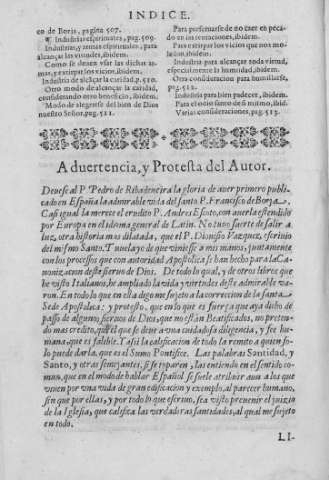 INDICE.
co de Boris, pagina 507.
¶ Industrias espirituales, pag. 509.
Industrias, y armas espirituales, para
alcançar las virtudes, ibidem.
Como se deuen vsar las dichas ar-
mas, y extirpar los vicios, ibidem.
Industria de alcãçar la caridad. p. 510.
Otro modo de alcançar la caridad,
considerando otro beneficio, ibidem.
Modo de alegrarse del bien de Dios
nuestro Señor, pag. 511.
Para perseuerar de no caer en peca-
do en las tentaciones, ibidem.
Para extirpar los vicios que nos mo-
lestan, ibidem.
Industria para alcançar toda virtud,
especialmente la humildad, ibidem.
Otra consideracion para humillarse,
pag. 512.
Industria para bien padecer, ibidem.
Para el conocimiento de si mismo, ibid.
Varias consideraciones, pag. 513.
Aduertencia, y Protesta del Autor.
Deuese al P. Pedro de Ribadeneira la gloria de auer primero publi-
cado en España la admirable vida del santo P. Francisco de Borja.
Casi igual la merece el erudito P. Andres Escoto, con auerla estendido
por Europa en el idioma general de Latin. No tuuo suerte de salir a
luz, otra historia mas dilatada, que el P. Dionisio Vazquez, escriuio
del mismo Santo. Tuue layo de que viniesse a mis manos, juntamente
con los processos que con autoridad Apostolica se han hecho para la Ca-
nonizacion deste sieruo de Dios. De todo lo qual, y de otros libros que
he visto Italianos, he ampliado la vida y virtudes deste admirable va-
ron. En todo lo que en ella digo me sujeto a la correccion de la santa
Sede Apostolica: y protesto, que en lo que es fuerça que aya dicho de
passo de algunos sieruos de Dios, que no estàn Beatificados, no preten-
do mas credito, que el que se deue a vna cuidadosa diligencia, y fee hu-
mana que es falible. Y assi la calificacion de todo la remito a quien so-
lo puede darla, que es el Sumo Pontifice. Las palabras Santidad, y
Santo, y otras semejantes, si se reparen, las entiendo en el sentido co-
mun, que en el modo de hablar Español se suele atribuir aun a los que
viuen por vna vida de gran edificacion y exemplo, al parecer humano,
sin que por ellas, y por todo lo que escriuo, sea visto preuenir el juizio
de la Iglesia, que califica las verdaderas santidades, al qual me sujeto
en todo.
LI-